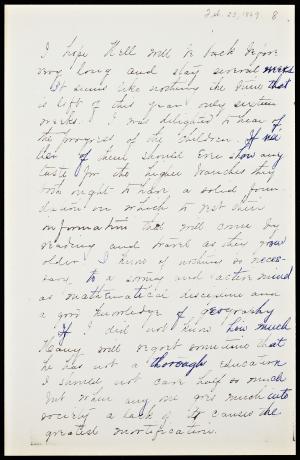 Feb. 23, 1869 8
I hope Nell will be back before
very long and stay several weeks
It seems like nothing the time that
is left of this year only sixteen
weeks. I was delighted to hear of
the progress of the children. If nei
ther of them should ever show any
taste for the higher branches they
both ought to have a solid foun-
dation on which to rest their
information that will come by
reading and travel as they grow
older I know of nothing so neces-
sary to a strong and active mind
as mathematical discipline and
a good knowledge of geography
If I did not know how much
Harry will regret sometime that
he has not a thorough education
I should not care half so much
but when any one goes much into
society a lack of it causes the
greatest mortification.